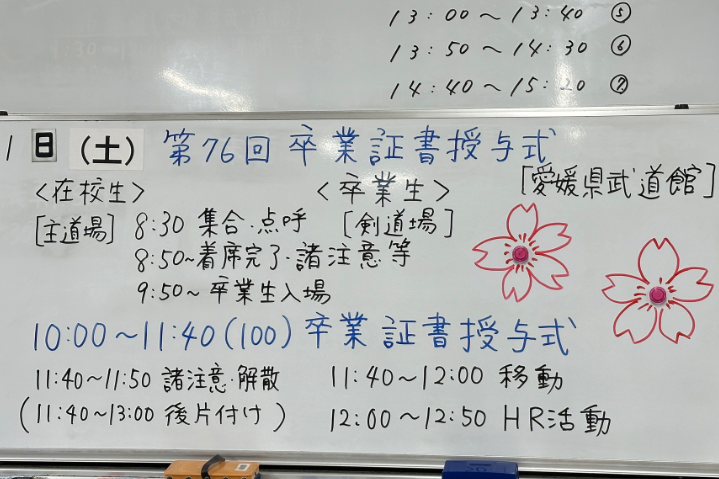 13:00〜13:40 ⑤
13:50〜14:30 ⑥
14:40〜15:20 ⑦
1日(土) 第76回 卒業証書授与式
<在校生> <卒業生> [愛媛県武道館]
[主道場] 8:30 集合・点呼 [剣道場]
8:50~着席完了・諸注意等
9:50~ 卒業生入場
10:00〜11:40(100) 卒業証書授与式
11:40〜11:50 諸注意・解散 11:40〜12:00 移動
(11:40〜13:00 後片付け) 12:00〜12:50 HR活動